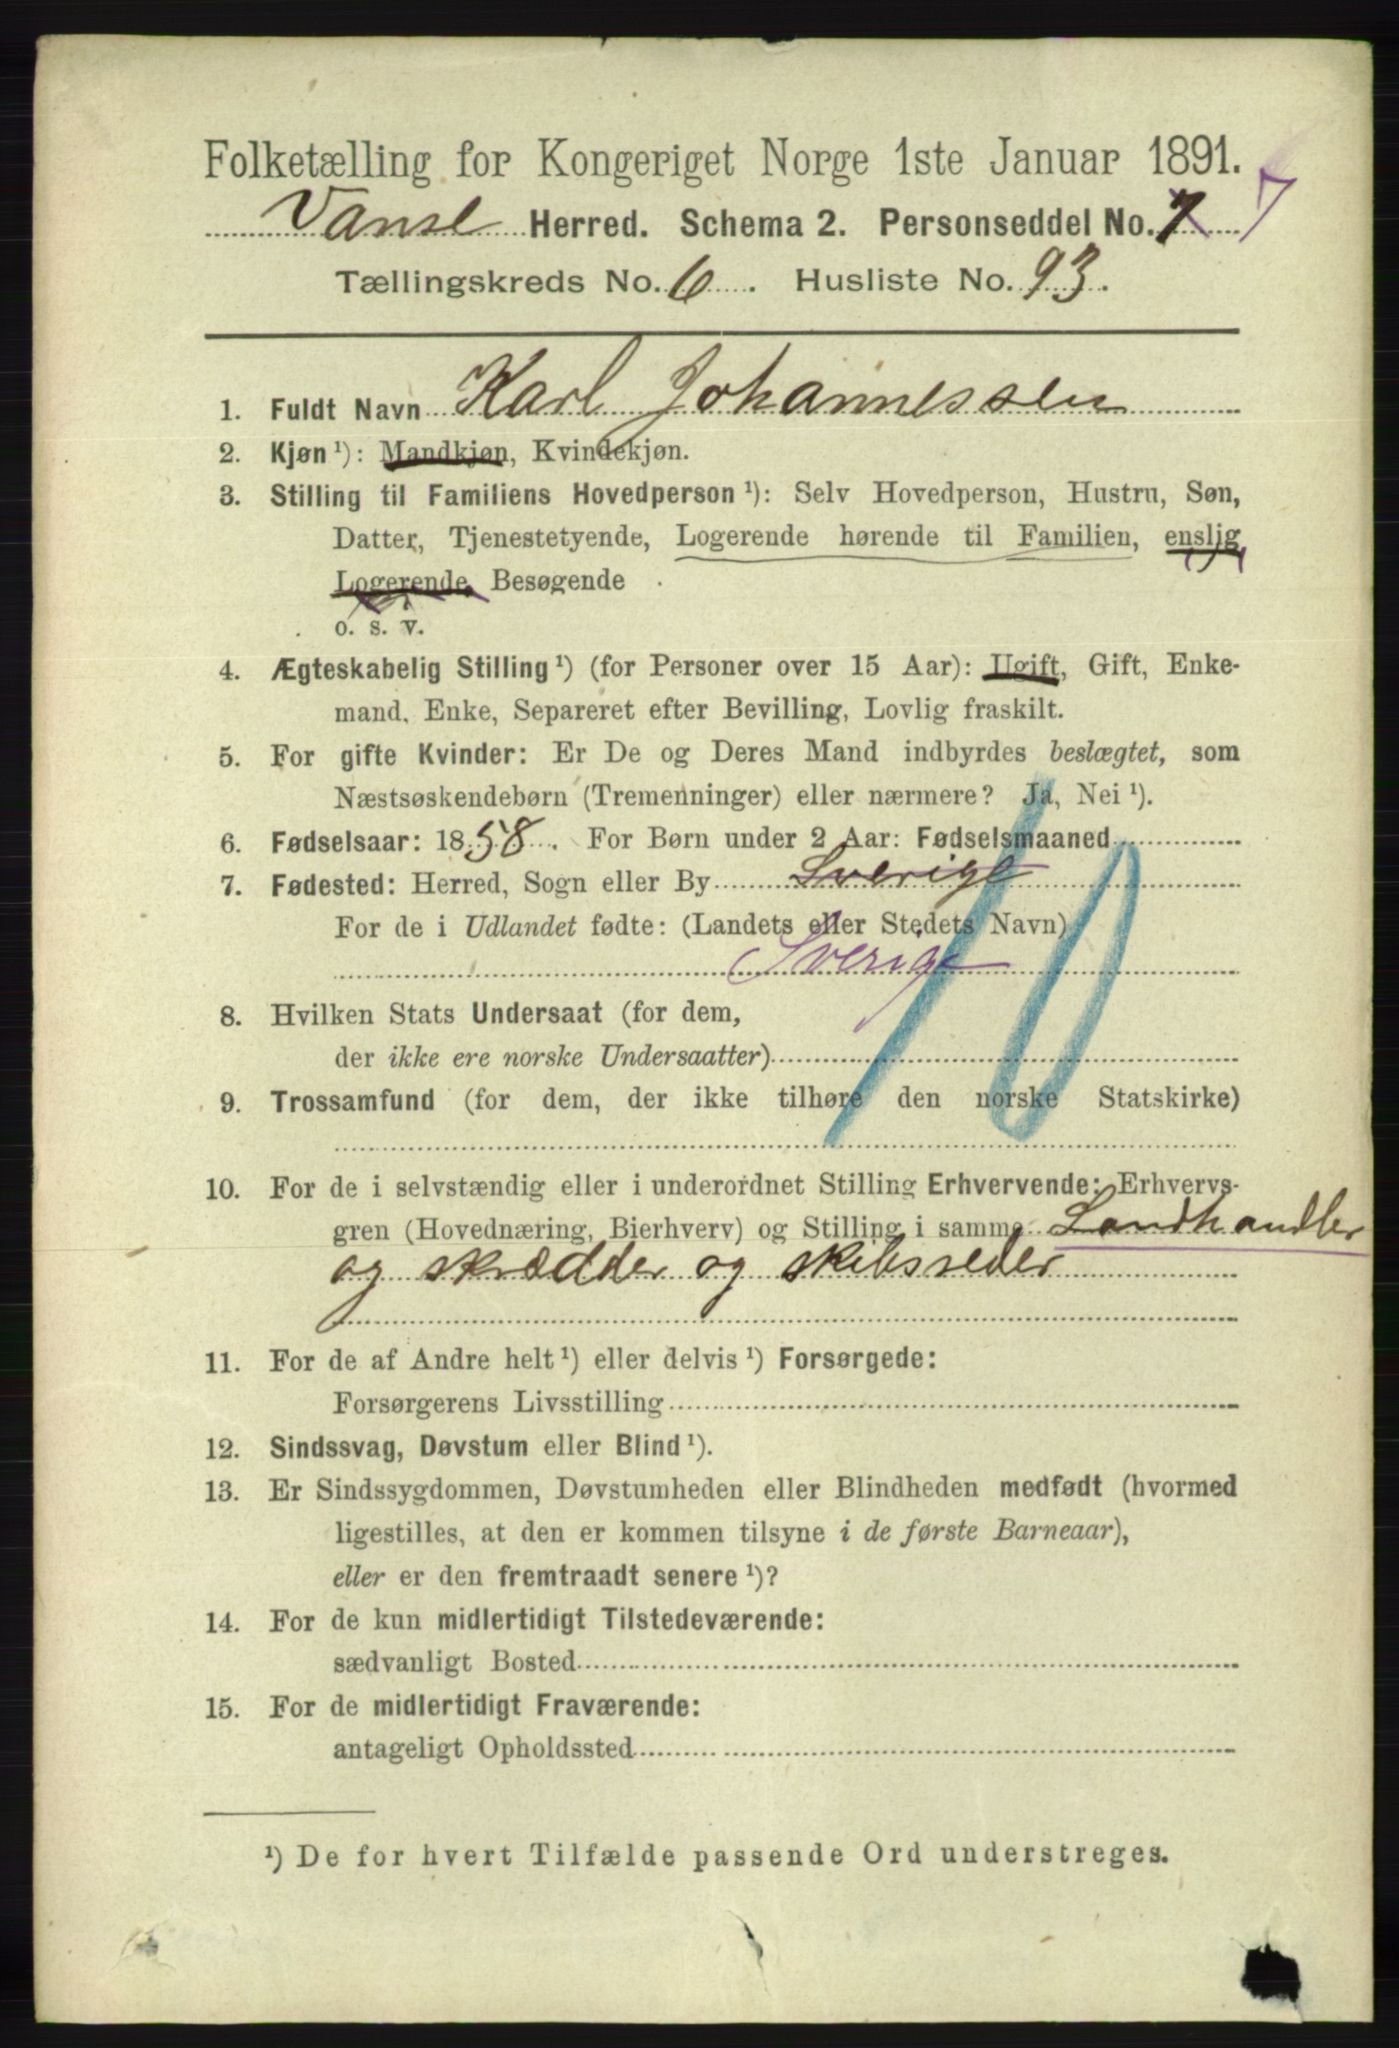 Folketælling for Kongeriget Norge 1ste Januar 1891.
Vanse Herred. Schema 2. Personseddel No. 7 7
Tællingskreds No. 6. Husliste No. 93.
1. Fuldt Navn Karl Johannessen
2. Kjøn ¹): Mandkjøn, Kvindekjøn.
3. Stilling til Familiens Hovedperson ¹): Selv Hovedperson, Hustru, Søn,
Datter, Tjenestetyende, Logerende hørende til Familien, enslig
Logerende, Besøgende
o. s. v.
4. Ægteskabelig Stilling ¹) (for Personer over 15 Aar): Ugift, Gift, Enke-
mand, Enke, Separeret efter Bevilling, Lovlig fraskilt.
5. For gifte Kvinder: Er De og Deres Mand indbyrdes beslægtet, som
Næstsøskendebørn (Tremenninger) eller nærmere? Ja, Nei ¹).
6. Fødselsaar: 1858. For Børn under 2 Aar: Fødselsmaaned
7. Fødested: Herred, Sogn eller By Sverige
For de i Udlandet fødte: (Landets eller Stedets Navn)
Sverige
10
8. Hvilken Stats Undersaat (for dem,
der ikke ere norske Undersaatter)
9. Trossamfund (for dem, der ikke tilhøre den norske Statskirke)
10. For de i selvstændig eller i underordnet Stilling Erhvervende: Erhvervs-
gren (Hovednæring, Bierhverv) og Stilling i samme Landhandler
og skrædder og skibsreder
11. For de af Andre helt ¹) eller delvis ¹) Forsørgede:
Forsørgerens Livsstilling
12. Sindssvag, Døvstum eller Blind ¹).
13. Er Sindssygdommen, Døvstumheden eller Blindheden medfødt (hvormed
ligestilles, at den er kommen tilsyne i de første Barneaar),
eller er den fremtraadt senere ¹)?
14. For de kun midlertidigt Tilstedeværende:
sædvanligt Bosted
15. For de midlertidigt Fraværende:
antageligt Opholdssted
¹) De for hvert Tilfælde passende Ord understreges.